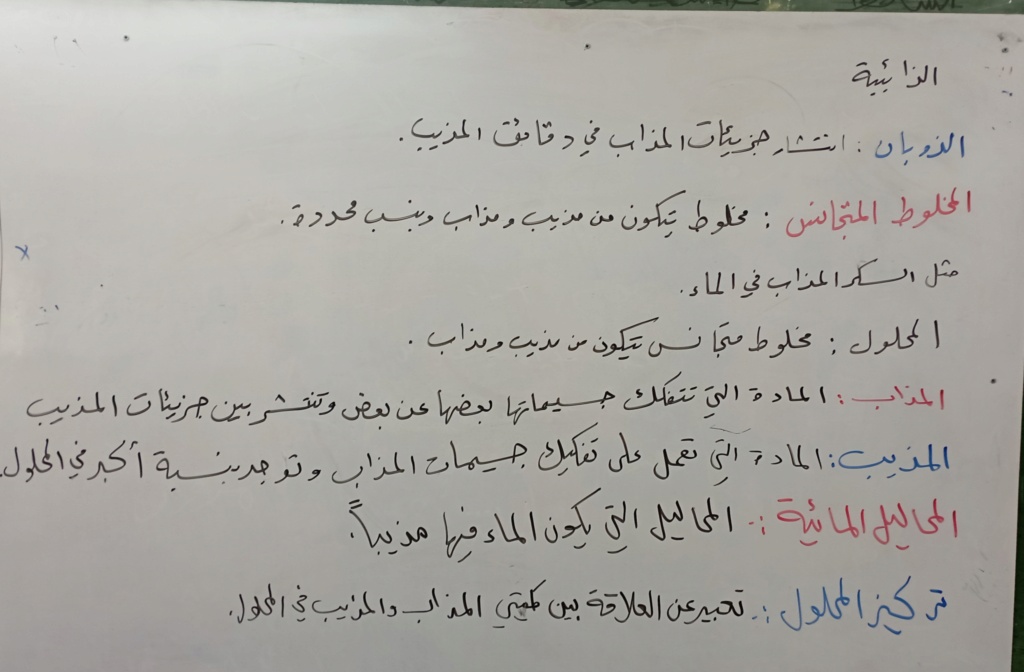 الذائبية
الذوبان : انتشار جزيئات المذاب في دقائق المذيب.
المخلوط المتجانس : مخلوط يتكون من مذيب ومذاب وبنسب محددة.
مثل السكر المذاب في الماء.
المحلول : مخلوط متجانس يتكون من مذيب ومذاب .
المذاب : المادة التي تتفكك جسيماتها بعضها عن بعض وتنتشر بين جزيئات المذيب
المذيب : المادة التي تعمل على تفكيك جسيمات المذاب وتوجد بنسبة أكبر في المحلول.
المحاليل المائية :. المحاليل التي يكون الماء فيها مذيباً.
تركيز المحلول :. تعبير عن العلاقة بين كميتي المذاب والمذيب في المحلول.